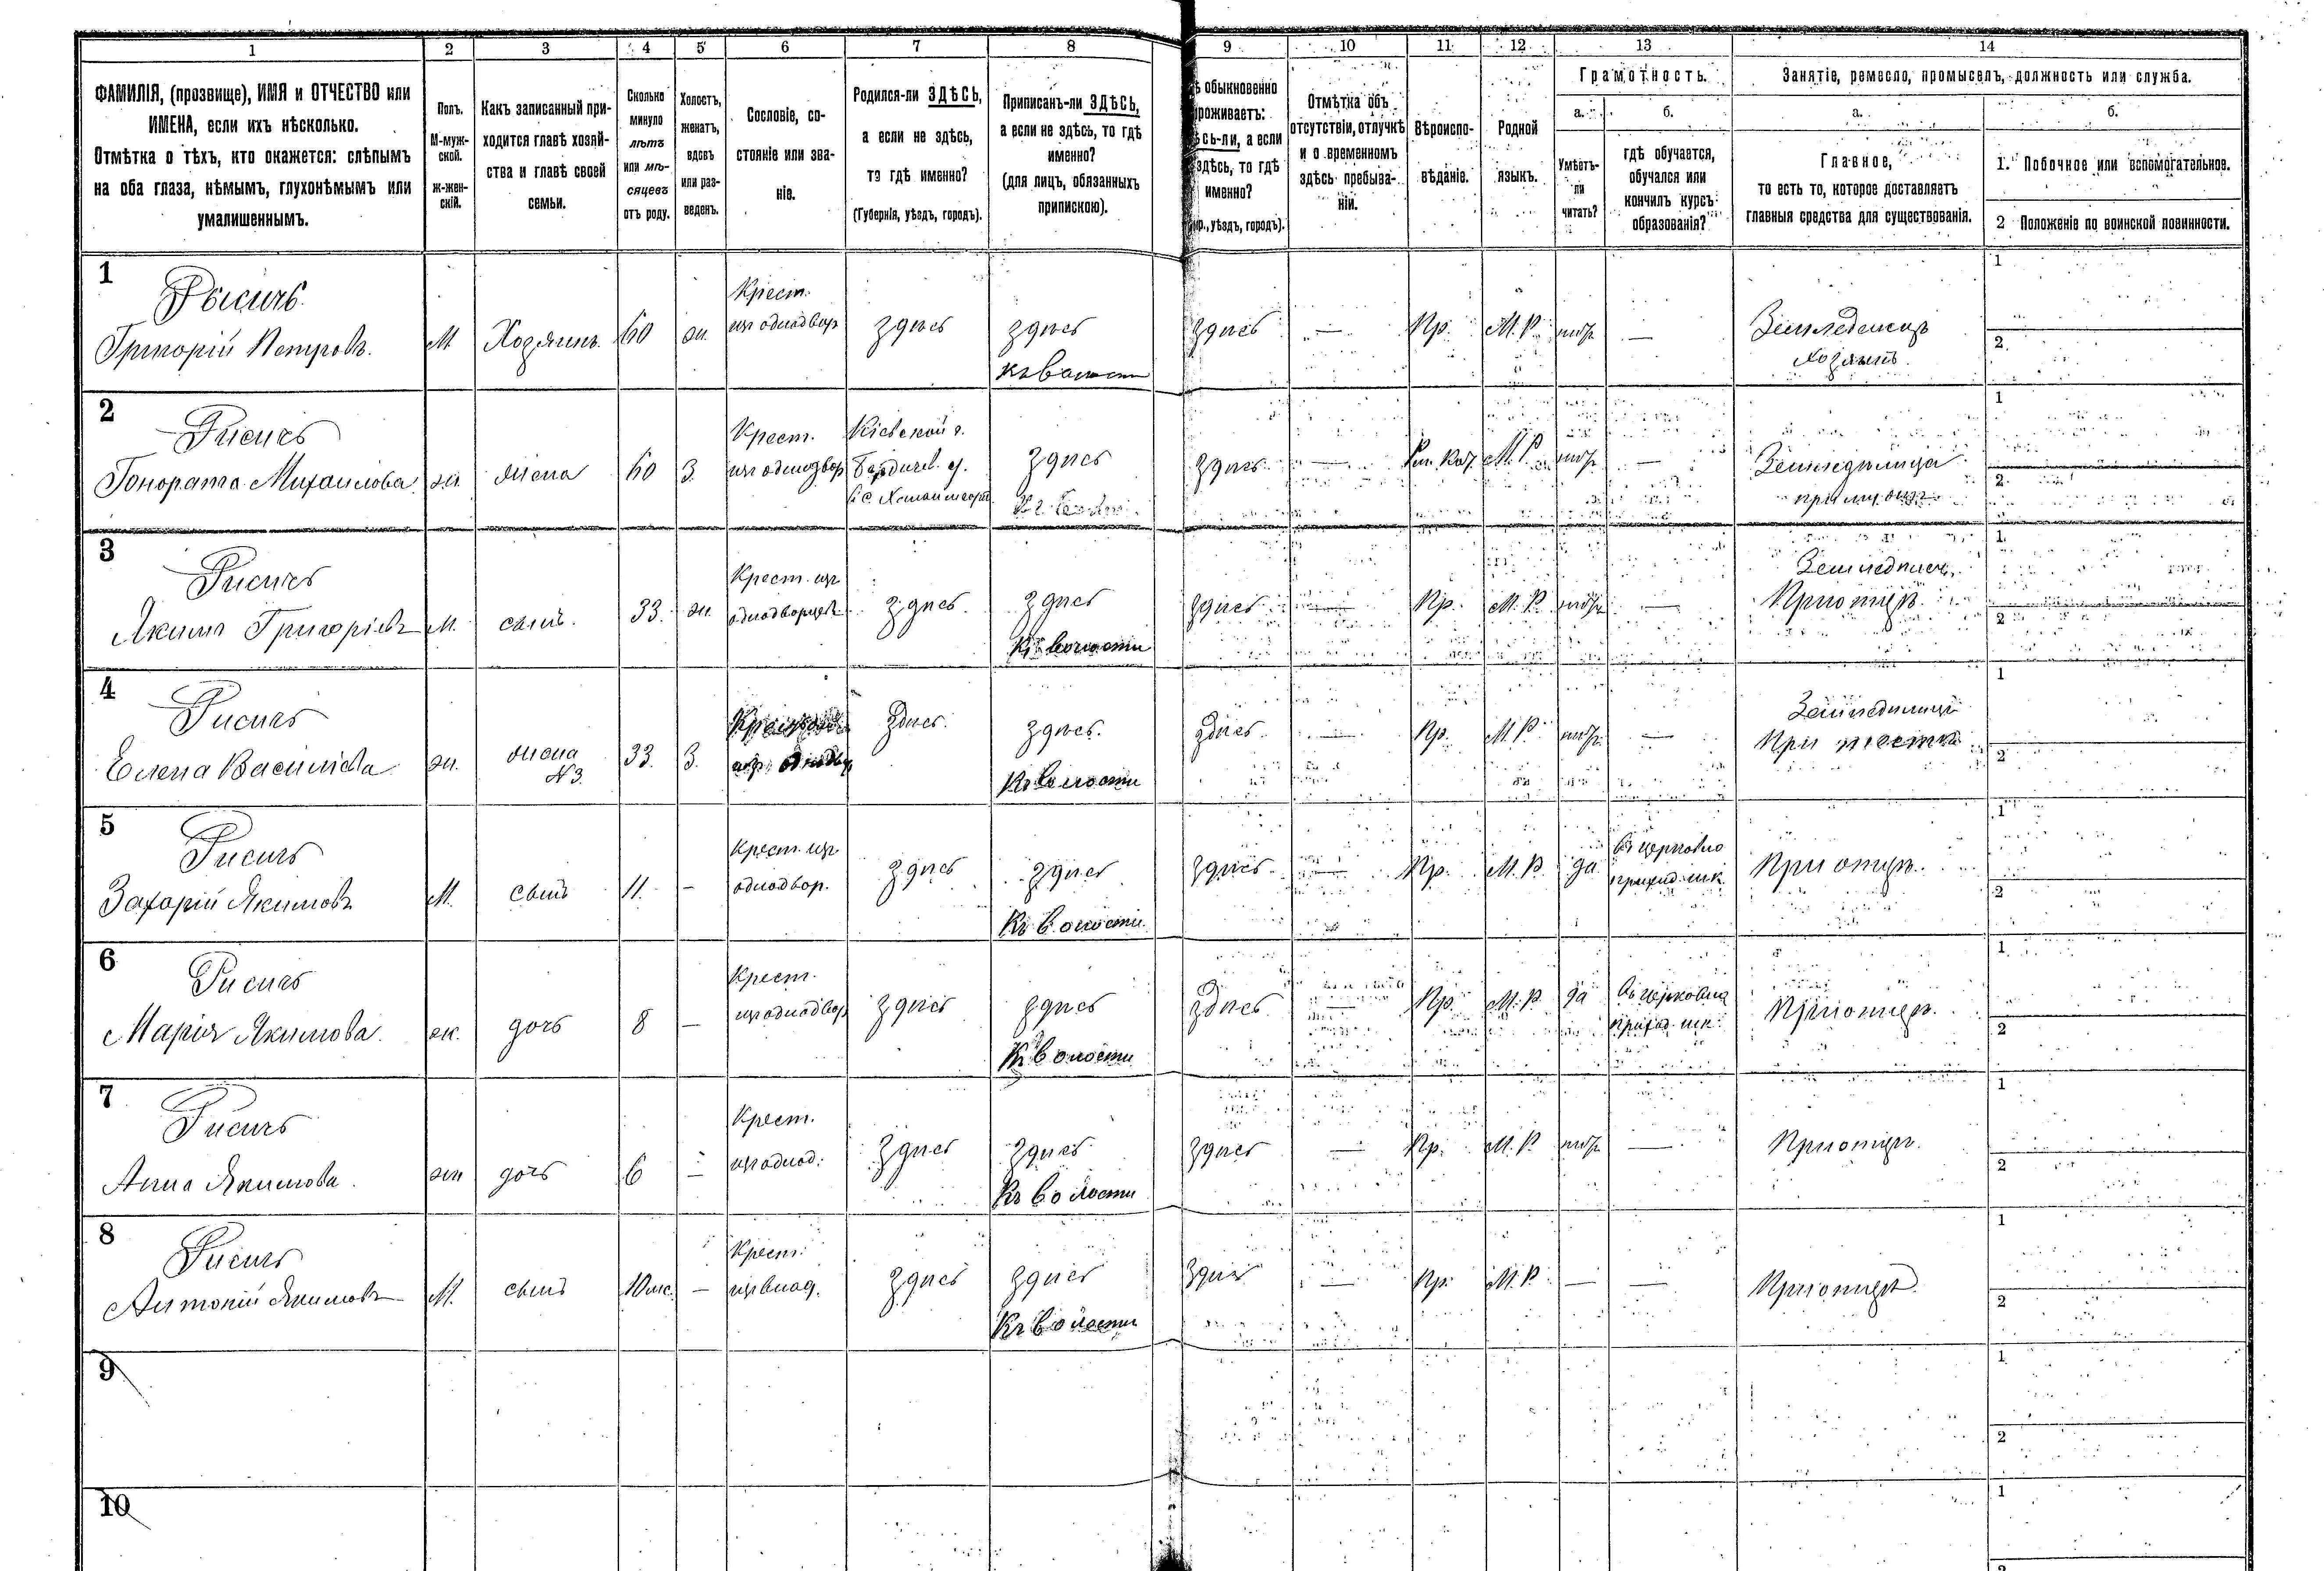 1 2 3 4 5 6 7 8 9 10 11 12 13 14
ФАМИЛІЯ, (прозвище), ИМЯ и ОТЧЕСТВО или
ИМЕНА, если ихъ нѣсколько.
Отмѣтка о тѣхъ, кто окажется: слѣпымъ
на оба глаза, нѣмымъ, глухонѣмымъ или
умалишеннымъ.
Полъ.
М-муж-
ской.
ж-жен-
скій.
Какъ записанный при-
ходится главѣ хозяй-
ства и главѣ своей
семьи.
Сколько
минуло
лѣтъ
или мѣ-
сяцевъ
отъ роду.
Холостъ,
женатъ,
вдовъ
или раз-
веденъ.
Сословіе, со-
стояніе или зва-
ніе.
Родился-ли ЗДѢСЬ,
а если не здѣсь,
то гдѣ именно?
(Губернія, уѣздъ, городъ).
Приписанъ-ли ЗДѢСЬ,
а если не здѣсь, то гдѣ
именно?
(для лицъ, обязанныхъ
припискою).
ѣ обыкновенно
роживаетъ:
ѣсь-ли, а если
здѣсь, то гдѣ
именно?
р., уѣздъ, городъ).
Отмѣтка объ
отсутствіи, отлучкѣ
и о временномъ
здѣсь пребыва-
ніи.
Вѣроиспо-
вѣданіе.
Родной
языкъ.
Грамотность.
а.
Умѣетъ-
ли
читать?
б.
гдѣ обучается,
обучался или
кончилъ курсъ
образованія?
Занятіе, ремесло, промыселъ, должность или служба.
а.
Главное,
то есть то, которое доставляетъ
главныя средства для существованія.
б.
1. Побочное или вспомогательное.
2 Положеніе по воинской повинности.
1
Рысичъ
Григорій Петровъ.
М.
Хозяинъ.
60
ж.
Крест.
изъ однодвор
здѣсь
здѣсь
къ волости
здѣсь
—
Пр.
М.Р.
—
Земледѣлецъ
хозяинъ
1
2
2
Рисичъ
Гонората Михаилова
ж.
жена
60
З.
Крест.
изъ однодвор
Кіевской г.
Бердичев. у.
здѣсь
здѣсь
—
Рим. Кат.
М.Р.
—
Земледѣлица
при мужѣ
1
2
3
Рисичъ
Якимъ Григоріевъ
М.
сынъ.
33.
ж.
Крест. изъ
однодворцевъ
здѣсь.
здѣсь
Къ волости
здѣсь
—
Пр.
М.Р.
—
Земледѣлец.
При отцѣ
1
2
4
Рисичъ
Елена Василіева
ж.
жена
N3.
33.
З.
здѣсь.
здѣсь.
Къ волости
здѣсь.
—
Пр.
М.Р.
—
Земледѣлица
При
1
2
5
Рисичъ
Захарій Якимовъ
М.
сынъ
11.
—
Крест. изъ
однодвор.
здѣсь
здѣсь
Къ волости.
здѣсь
—
Пр.
М.Р.
да
въ церковно
приход. шк.
При отцѣ.
1
2
6
Рисичъ
Марія Якимова.
ж.
дочь
8
—
Крест.
изъ однодвор
здѣсь
здѣсь
Къ волости
здѣсь
—
Пр.
М.Р.
да
Въ церковно
приход. шк.
При отцѣ.
1
2
7
Рисичъ
Анна Якимова.
ж
дочь
6
—
Крест.
изъ однод.
здѣсь
здѣсь
Къ волости
здѣсь
—
Пр.
М.Р.
—
При отцѣ.
1
2
8
Рисичъ
Антоній Якимовъ
М.
сынъ
10 мс.
—
Крест.
здѣсь
здѣсь
Къ волости
здѣсь
—
Пр.
М.Р.
—
—
При отцѣ.
1
2
9
1
2
10
1